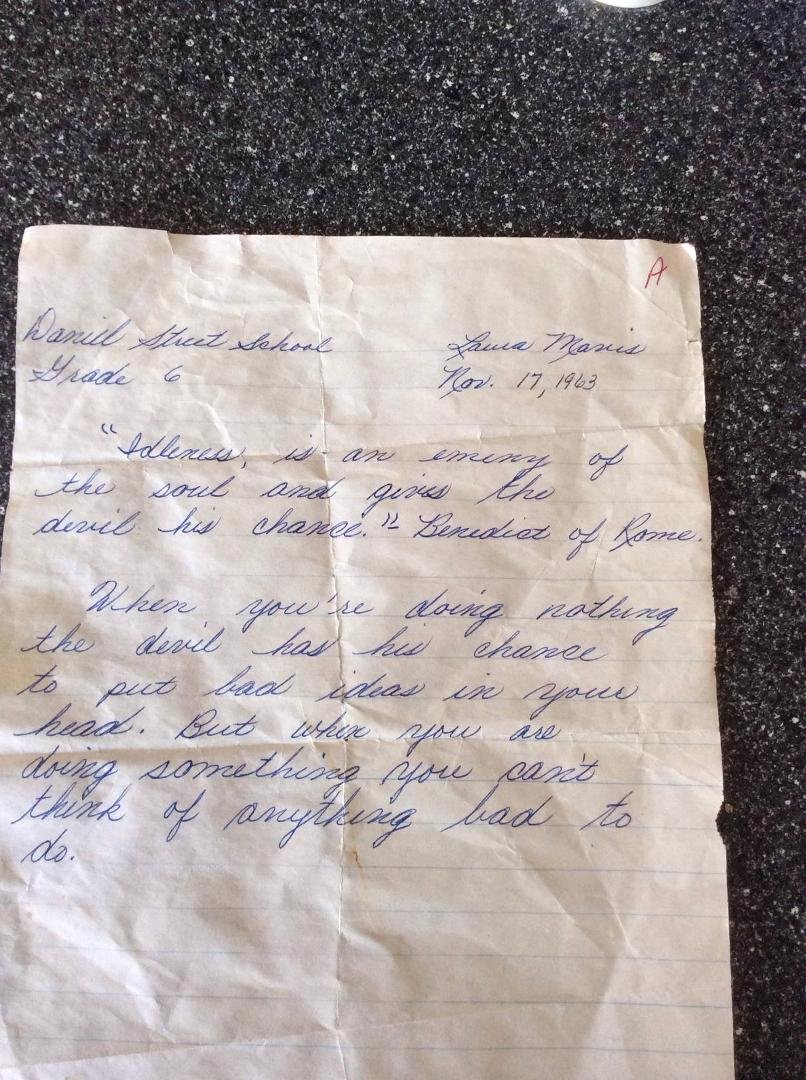 A
Daniel Street School Laura Manis
Grade 6 Nov. 17, 1963
"Idleness, is an emeny of
the soul and gives the
devil his chance."- Benedict of Rome.
When you're doing nothing
the devil has his chance
to put bad ideas in your
head. But when you are
doing something you can't
think of anything bad to
do.